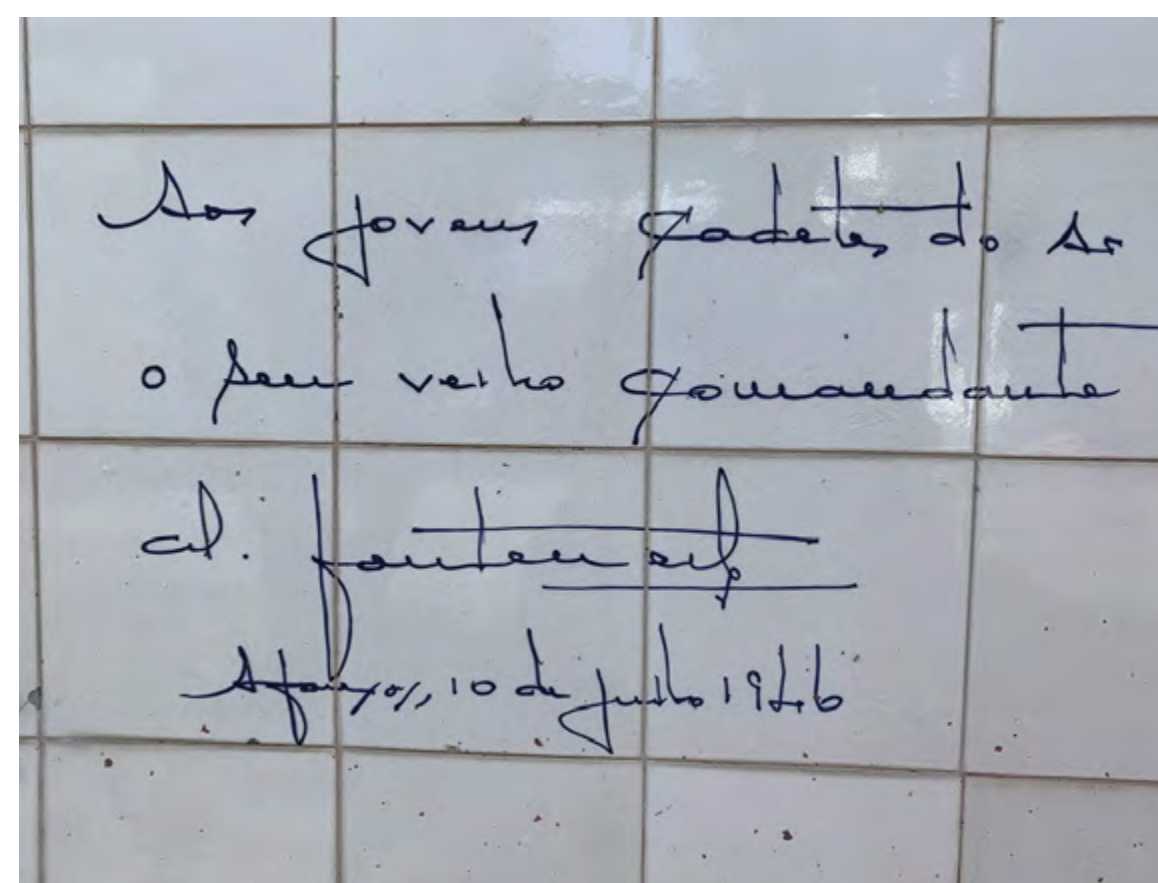 Aos jovens Cadetes do Ar
o seu velho Comandante
cel. Fontenele
Afonsos, 10 de julho 1946